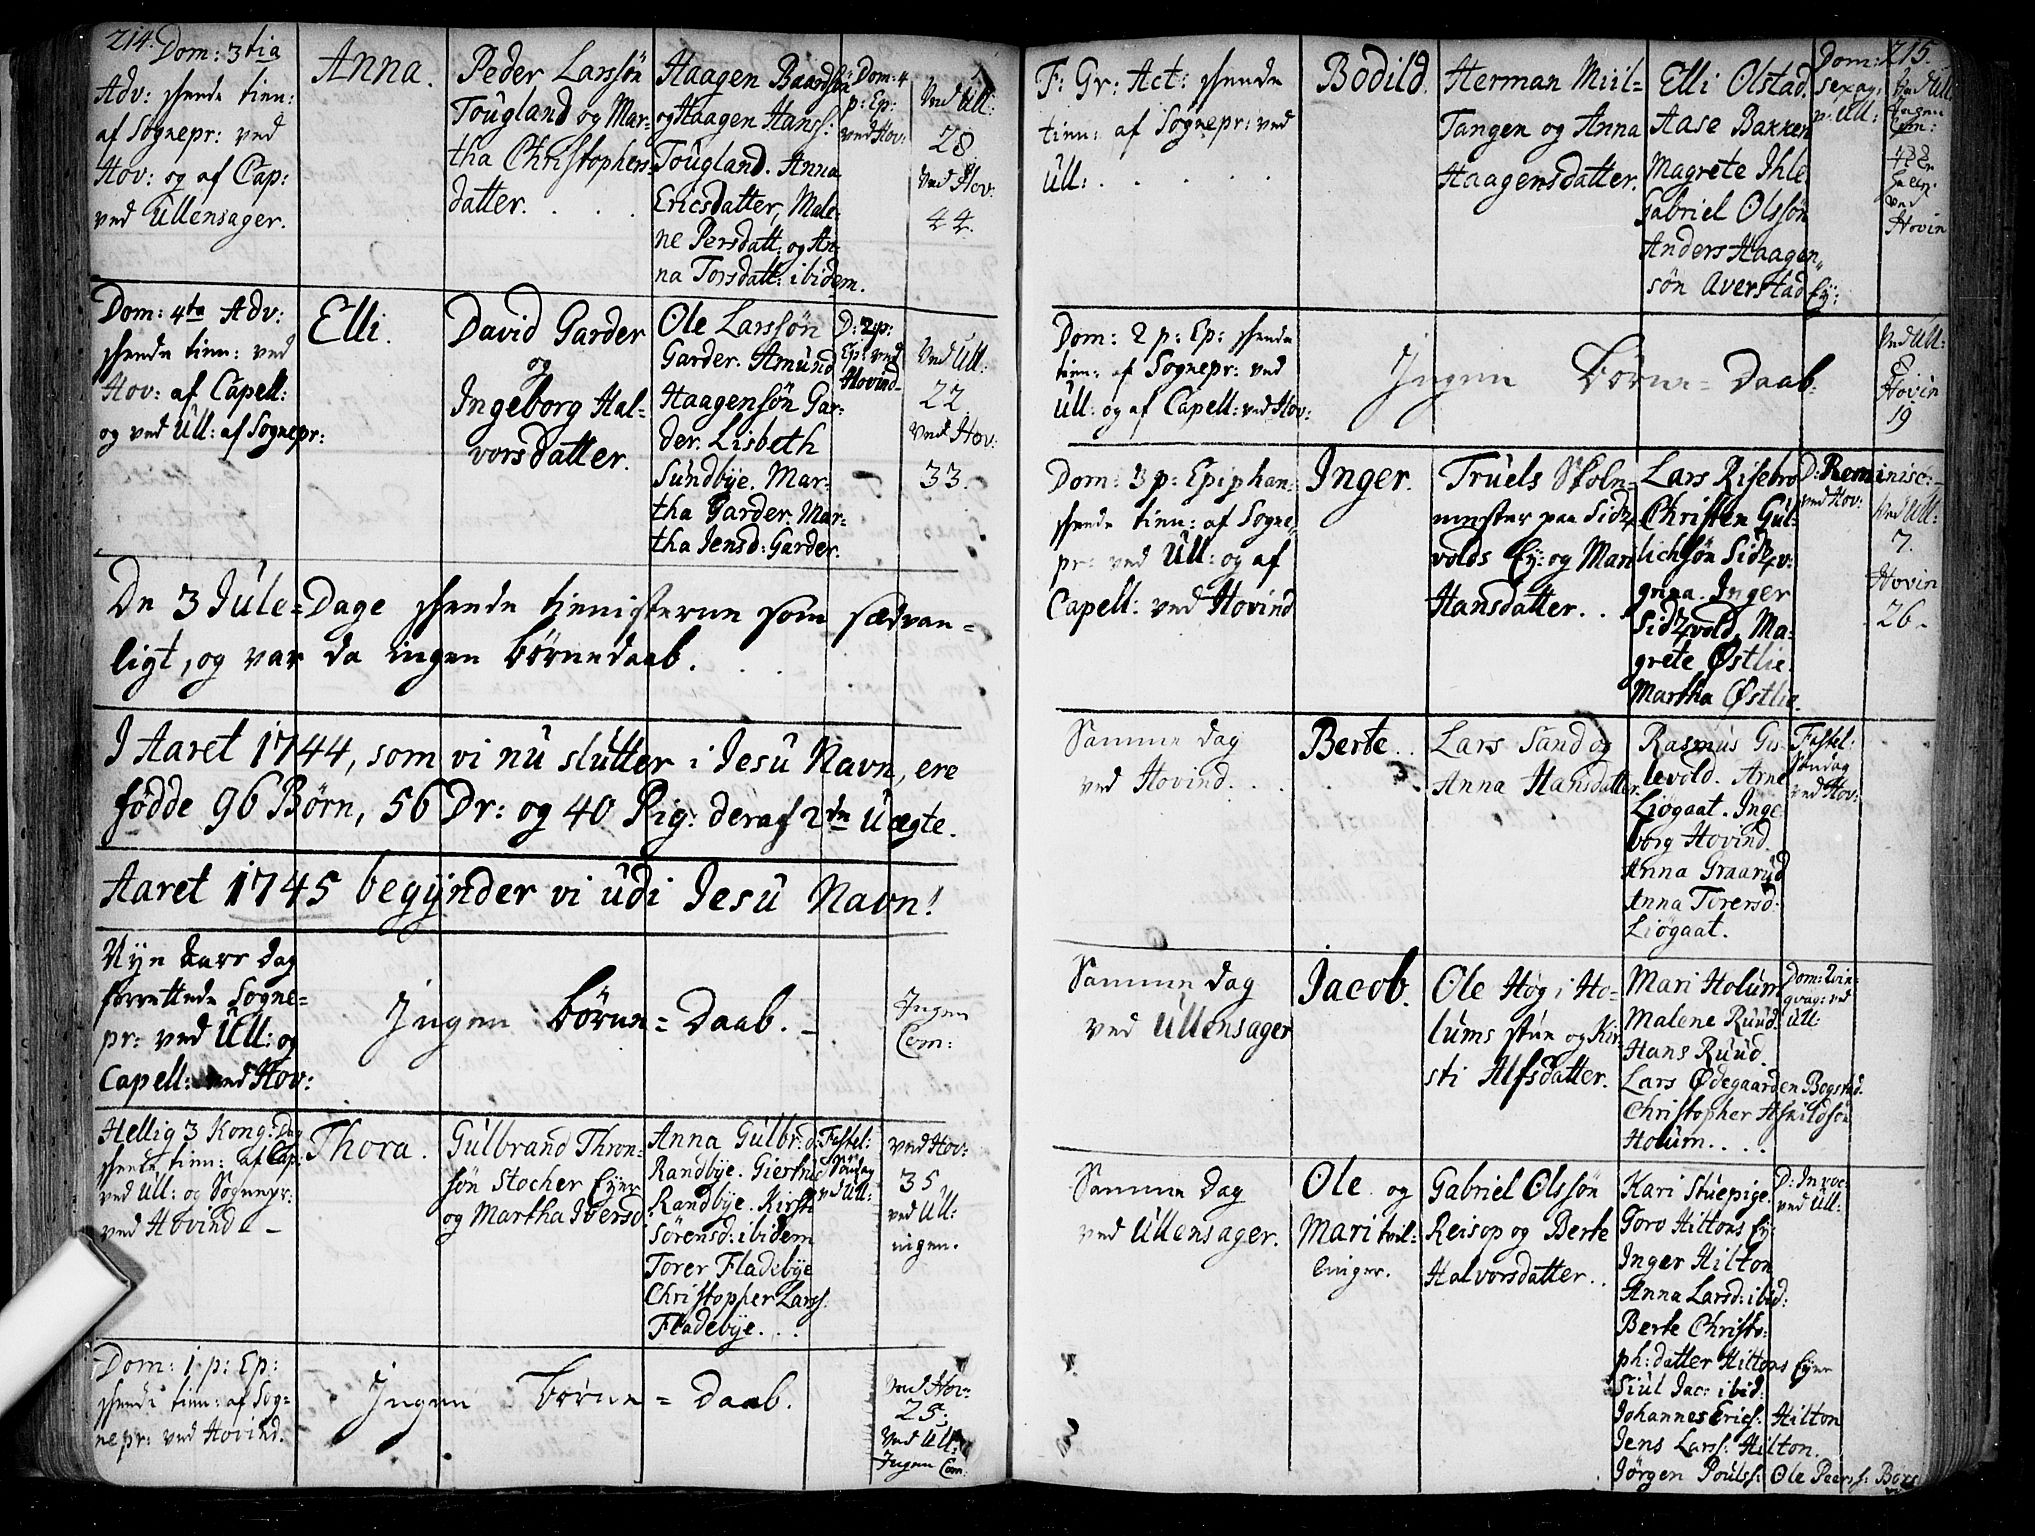 214.
Dom: 3tia
Adv: skeede tien:
af Sognepr: ved
Hov: og af Cap:
ved Ullensager.
Anna.
Peder Larssön
Tougland og Mar=
tha Christophers=
datter. . . .
Haagen Baardsön
og Haagen Hanss:
Tougland. Anna
Ericsdatter, Male=
ne Persdatt: og An=
na Torsdatt: ibidem.
Dom: 4
p: Ep:
ved Hov:
Ved Ull:
28
ved Hov:
44.
Dom: 4ta Adv:
skeede tien: ved
Hov: af Capell:
og ved Ull: af Sognepr:
Elli.
David Garder
og
Ingeborg Hal=
vorsdatter.
Ole Larssön
Garder. Amund
Haagensön Gar=
der. Lisbeth
Sundbye. Mar=
tha Garder. Mar=
tha Jensd: Garder.
D: 2 p:
Ep: ved
Hovind
Ved Ull:
22
ved Hov:
33.
De 3 Jule=Dage skeede tienisterne som sædvan=
ligt, og var da ingen börnedaab. . .
I Aaret 1744, som vi nu slutter i Jesu Navn, ere
födde 96 Börn, 56 Dr: og 40 Pig: deraf 2de Uægte.
Aaret 1745 begynder vi udi Jesu Navn!
Nyе Aars dag
forrettede Sogne=
pr: ved Ull: og
Capell: ved Hov:
Ingen börne=Daab.
Ingen
Com:
Hellig 3 Kong: Dag
skeede tien: af Cap:
ved Ull: og Sognepr:
ved Hovind
Thora.
Gulbrand Thron=
sön Stocher Eyer
og Martha Iversd
Anna Gulbr:d:
Randbye. Giertrud
Randbye. Kirsti
Sörensd: ibidem
Torer Fladebye
Christopher Larss:
Fladebye. . .
Fastel:
Söndag
ved Ull:
ved Hov:
35
ved Ull:
ingen.
Dom: 1 p: Ep:
skeede tien: af Sog=
nepr: ved Hovind.
Ingen börne=Daab.
Ved Hov:
25.
ved Ull:
Ingen Com:
215.
F: Gr: Act: skeede
tien: af Sognepr: ved
Ull: . . . . .
Bodild.
Herman Miil=
Tangen og Anna
Haagensdatter.
Elli Olstad.
Aase Bakken
Magrete Ihle
Gabriel Olssön
Anders Haagen=
sön Averstad Ey:
Dom:
Sexag:
p: Ull:
ved Ull:
Ingen
Com:
ved
Hovin
Dom: 2 p: Ep: skeede
tien: af Sognepr: ved
Ull: og af Capell: ved Hov:
Ingen Börne=Daab.
Ved Ull:
8
Hovin
19
Dom: 3 p: Epiphan:
skeede tien: af Sogne=
pr: ved Ull: og af
Capell: ved Hovind
Inger.
Truels Skole=
mester paa Sidz=
volds Ey: og Mari
Hansdatter. . .
Lars Risebro
Christen Gul=
lichsön Sidzv:
grina. Inger
Sidzvold. Ma=
grete Østlie.
Martha Østlie.
D: Reminisc:
ved Hov:
Ved Ull:
7.
Hovin
26
Samme dag
ved Hovind. . .
Berte. .
Lars Sand og
Anna Hansdatter.
Rasmus Gis=
levold. Arne
Liögaat. Inge=
borg Hovind.
Anna Graarud
Anna Torersd:
Liögaat.
Fastel:
Söndag
ved Hov:
Samme dag
ved Ullensager
Jacob.
Ole Høg i Ho=
lums stue og Kir=
sti Alfsdatter.
Mari Holum
Malene Ruud.
Hans Ruud.
Lars Ødegaarden Bogstad.
Christopher Asmildsön
Holum. . . .
Dom: Qvin=
qvag: ved
Ull:
Samme Dag
ved Ullensager.
Ole og
Mari tvil=
linger.
Gabriel Olssön
Reisop og Berte
Halvorsdatter. .
Kari Stuepige.
Toro Hiltons Ey:
Inger Hilton
Anna Larsd: ibid:
Berte Christo=
ph: datter Hiltons Eyer
Siul Jac: ibid:
Johannes Erics: Hilton
Jens Larss: Hilton.
Jörgen Pouls: Ole Peers:
D: Invoc:
ved Ull: